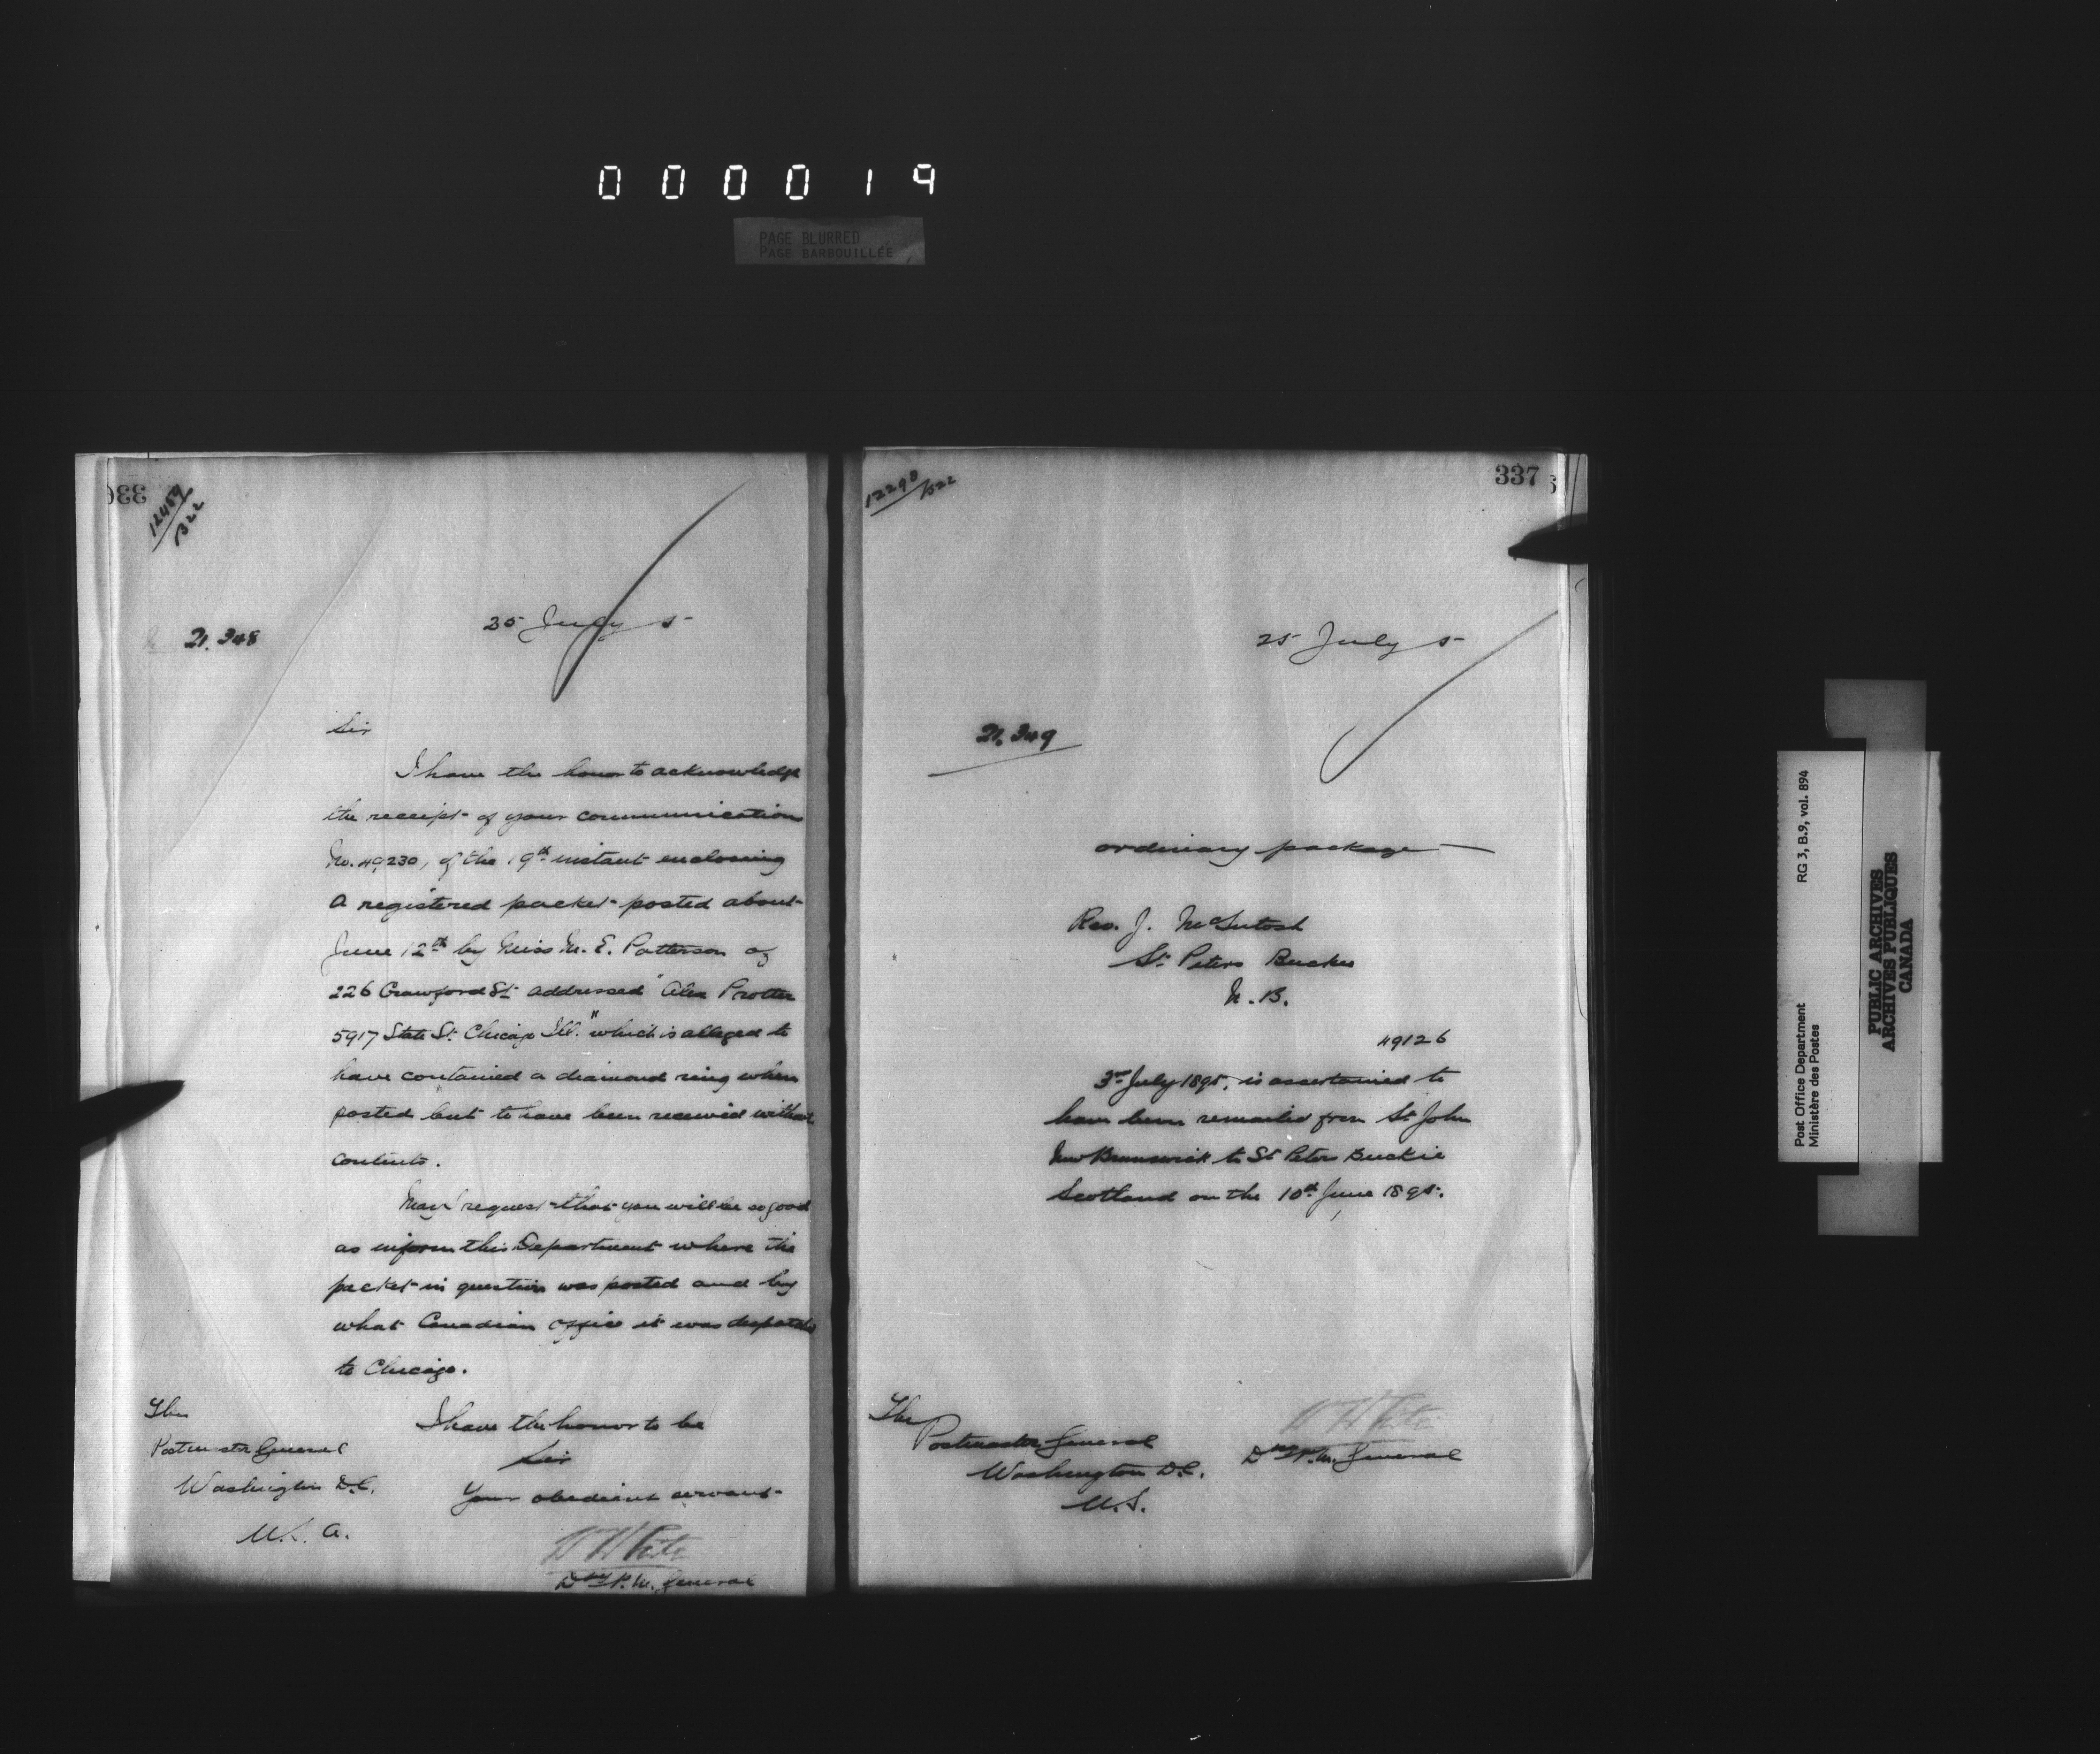 000019
PAGE BLURRED
PAGE BARBOUILLÉE
12459
B22
21.348
25 July 5
Sir
I have the honor to acknowledge
the receipt of your communication
No. 49,230, of the 19th instant enclosing
a registered packet posted about
June 12th by Miss M. E. Patterson of
226 Crawford St addressed "Alex Protter
5917 State St. Chicago Ill." which is alleged to
have contained a diamond ring when
posted but to have been received without
contents.
May I request that you will be so good
as inform this Department where the
packet in question was posted and by
what Canadian office it was despatched
to Chicago.
I have the honor to be
Sir
Your obedient servant
W White
Dy P.M. General
The
Postmaster General
Washington D.C.
U.S.A.
337
12298/B22
25 July 5
21.349
ordinary package
Rev. J. McIntosh
St Peters Buckie
N.B.
49126
3rd July 1895, is ascertained to
have been remailed from St John
New Brunswick to St Peters Buckie
Scotland on the 10th June 1895.
W White
Dy P.M. General
The
Postmaster General
Washington D.C.
U.S.
Post Office Department
Ministère des Postes
RG 3, B.9, vol. 894
PUBLIC ARCHIVES
ARCHIVES PUBLIQUES
CANADA